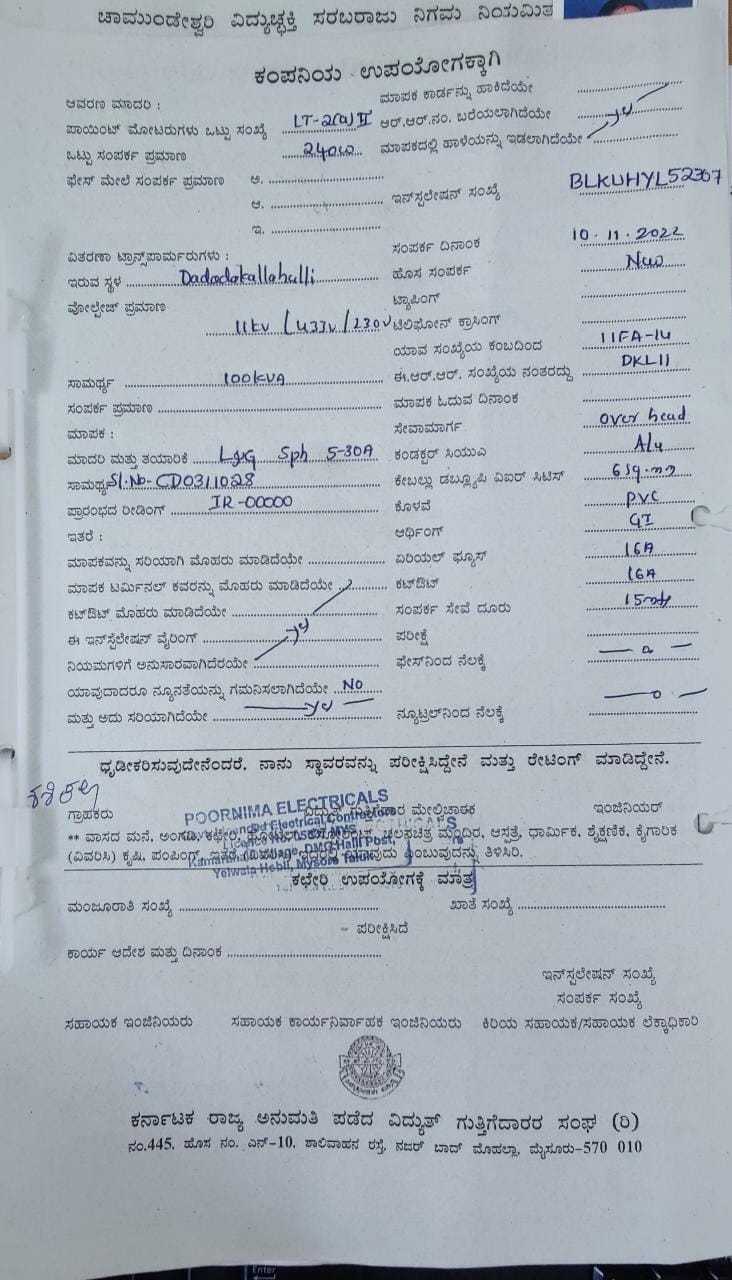 ಚಾಮುಂಡೇಶ್ವರಿ ವಿದ್ಯುಚ್ಛಕ್ತಿ ಸರಬರಾಜು ನಿಗಮ ನಿಯಮಿತ
ಕಂಪನಿಯ ಉಪಯೋಗಕ್ಕಾಗಿ
ಆವರಣ ಮಾದರಿ : ಮಾಪಕ ಕಾರ್ಡನ್ನು ಹಾಕಿದೆಯೇ
ಪಾಯಿಂಟ್ ಮೋಟರುಗಳು ಒಟ್ಟು ಸಂಖ್ಯೆ LT-2(a) II ಆರ್.ಆರ್.ನಂ. ಬರೆಯಲಾಗಿದೆಯೇ
ಒಟ್ಟು ಸಂಪರ್ಕ ಪ್ರಮಾಣ ಮಾಪಕದಲ್ಲಿ ಹಾಳೆಯನ್ನು ಇಡಲಾಗಿದೆಯೇ
ಫೇಸ್ ಮೇಲೆ ಸಂಪರ್ಕ ಪ್ರಮಾಣ ಅ.
ಆ. ಇನ್‌ಸ್ಟಲೇಷನ್ ಸಂಖ್ಯೆ BLKUHYL52367
ಇ.
ವಿತರಣಾ ಟ್ರಾನ್ಸ್‌ಪಾರ್ಮರುಗಳು : ಸಂಪರ್ಕ ದಿನಾಂಕ 10.11.2022
ಇರುವ ಸ್ಥಳ Dadadakallahalli ಹೊಸ ಸಂಪರ್ಕ
ವೋಲ್ಟೇಜ್ ಪ್ರಮಾಣ ಟ್ಯಾಪಿಂಗ್
11kv /433v/230v ಟೆಲಿಫೋನ್ ಕ್ರಾಸಿಂಗ್
ಯಾವ ಸಂಖ್ಯೆಯ ಕಂಬದಿಂದ 11FA-14
ಸಾಮರ್ಥ್ಯ 100kVA ಈ.ಆರ್.ಆರ್. ಸಂಖ್ಯೆಯ ನಂತರದ್ದು DKL11
ಸಂಪರ್ಕ ಪ್ರಮಾಣ ಮಾಪಕ ಓದುವ ದಿನಾಂಕ
ಮಾಪಕ : ಸೇವಾಮಾರ್ಗ over head
ಮಾದರಿ ಮತ್ತು ತಯಾರಿಕೆ L&G Sph 5-30A ಕಂಡಕ್ಟರ್ ಸಿಯುಎ Alu
ಸಾಮರ್ಥ್ಯ Sl.No-CD0311028 ಕೇಬಲ್ಲು ಡಬ್ಲ್ಯೂಪಿ ವಿಐರ್ ಸಿಟಿಸ್ 6sq.mm
ಪ್ರಾರಂಭದ ರೀಡಿಂಗ್ IR-00000 ಕೊಳವೆ PVC
ಇತರೆ : ಆರ್ಥಿಂಗ್ GI
ಮಾಪಕವನ್ನು ಸರಿಯಾಗಿ ಮೊಹರು ಮಾಡಿದೆಯೇ ಏರಿಯಲ್ ಫ್ಯೂಸ್ 16A
ಮಾಪಕ ಟರ್ಮಿನಲ್ ಕವರನ್ನು ಮೊಹರು ಮಾಡಿದೆಯೇ ಕಟ್‌ಔಟ್ 16A
ಕಟ್‌ಔಟ್ ಮೊಹರು ಮಾಡಿದೆಯೇ ಸಂಪರ್ಕ ಸೇವೆ ದೂರು
ಈ ಇನ್‌ಸ್ಟಲೇಷನ್ ವೈರಿಂಗ್ ಪರೀಕ್ಷೆ
ನಿಯಮಗಳಿಗೆ ಅನುಸಾರವಾಗಿದೆರಯೇ ಫೇಸ್‌ನಿಂದ ನೆಲಕ್ಕೆ
ಯಾವುದಾದರೂ ನ್ಯೂನತೆಯನ್ನು ಗಮನಿಸಲಾಗಿದೆಯೇ NO
ಮತ್ತು ಅದು ಸರಿಯಾಗಿದೆಯೇ ನ್ಯೂಟ್ರಲ್‌ನಿಂದ ನೆಲಕ್ಕೆ
ಧೃಡೀಕರಿಸುವುದೇನೆಂದರೆ, ನಾನು ಸ್ಥಾವರವನ್ನು ಪರೀಕ್ಷಿಸಿದ್ದೇನೆ ಮತ್ತು ರೇಟಿಂಗ್ ಮಾಡಿದ್ದೇನೆ.
POORNIMA ELECTRICALS
ಗ್ರಾಹಕರು ವಿದ್ಯುತ್ ಗುತ್ತಿಗೆದಾರ ಮೇಲ್ವಿಚಾರಕ ಇಂಜಿನಿಯರ್
** ವಾಸದ ಮನೆ, ಅಂಗಡಿ, ಕಛೇರಿ, ಹೋಟೆಲ್, ಚಲನಚಿತ್ರ ಮಂದಿರ, ಆಸ್ಪತ್ರೆ, ಧಾರ್ಮಿಕ, ಶೈಕ್ಷಣಿಕ, ಕೈಗಾರಿಕ
(ವಿವರಿಸಿ) ಕೃಷಿ, ಪಂಪಿಂಗ್, ಇತರೆ ಯಾವುದು ಎಂಬುವುದನ್ನು ತಿಳಿಸಿರಿ.
Yelwala Hobli, Mysore Taluk
ಕಛೇರಿ ಉಪಯೋಗಕ್ಕೆ ಮಾತ್ರ
ಮಂಜೂರಾತಿ ಸಂಖ್ಯೆ ಖಾತೆ ಸಂಖ್ಯೆ
- ಪರೀಕ್ಷಿಸಿದೆ
ಕಾರ್ಯ ಆದೇಶ ಮತ್ತು ದಿನಾಂಕ
ಇನ್‌ಸ್ಟಲೇಷನ್ ಸಂಖ್ಯೆ
ಸಂಪರ್ಕ ಸಂಖ್ಯೆ
ಸಹಾಯಕ ಇಂಜಿನಿಯರು ಸಹಾಯಕ ಕಾರ್ಯನಿರ್ವಾಹಕ ಇಂಜಿನಿಯರು ಕಿರಿಯ ಸಹಾಯಕ/ಸಹಾಯಕ ಲೆಕ್ಕಾಧಿಕಾರಿ
ಕರ್ನಾಟಕ ರಾಜ್ಯ ಅನುಮತಿ ಪಡೆದ ವಿದ್ಯುತ್ ಗುತ್ತಿಗೆದಾರರ ಸಂಘ (ರಿ)
ನಂ.445, ಹೊಸ ನಂ. ಎನ್-10, ಶಾಲಿವಾಹನ ರಸ್ತೆ, ನಜರ್ ಬಾದ್ ಮೊಹಲ್ಲಾ, ಮೈಸೂರು-570 010
Enter